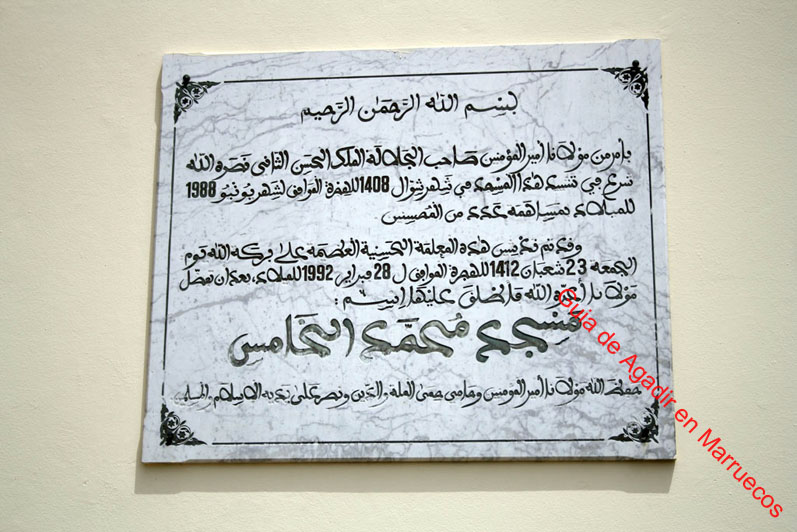 بسم الله الرحمن الرحيم
بأمر من مولانا أمير المؤمنين صاحب الجلالة الملك الحسن الثاني نصره الله
شرع في تشييد هذا المسجد في شهر شوال 1408 للهجرة الموافق لشهر يونيو 1988
للميلاد بمساهمة عدد من المحسنين.
وقد تم تدشين هذه المعلمة الحسنية العظيمة على بركة الله يوم
الجمعة 23 شعبان 1412 للهجرة الموافق ل 28 فبراير 1992 للميلاد، بعد أن تفضل
مولانا أعزه الله فأطلق عليها اسم :
مسجد محمد الخامس
حفظ الله مولانا أمير المؤمنين وحامي حمى الملة والدين ونصر على يديه الإسلام
Guia de Agadir en Marruecos